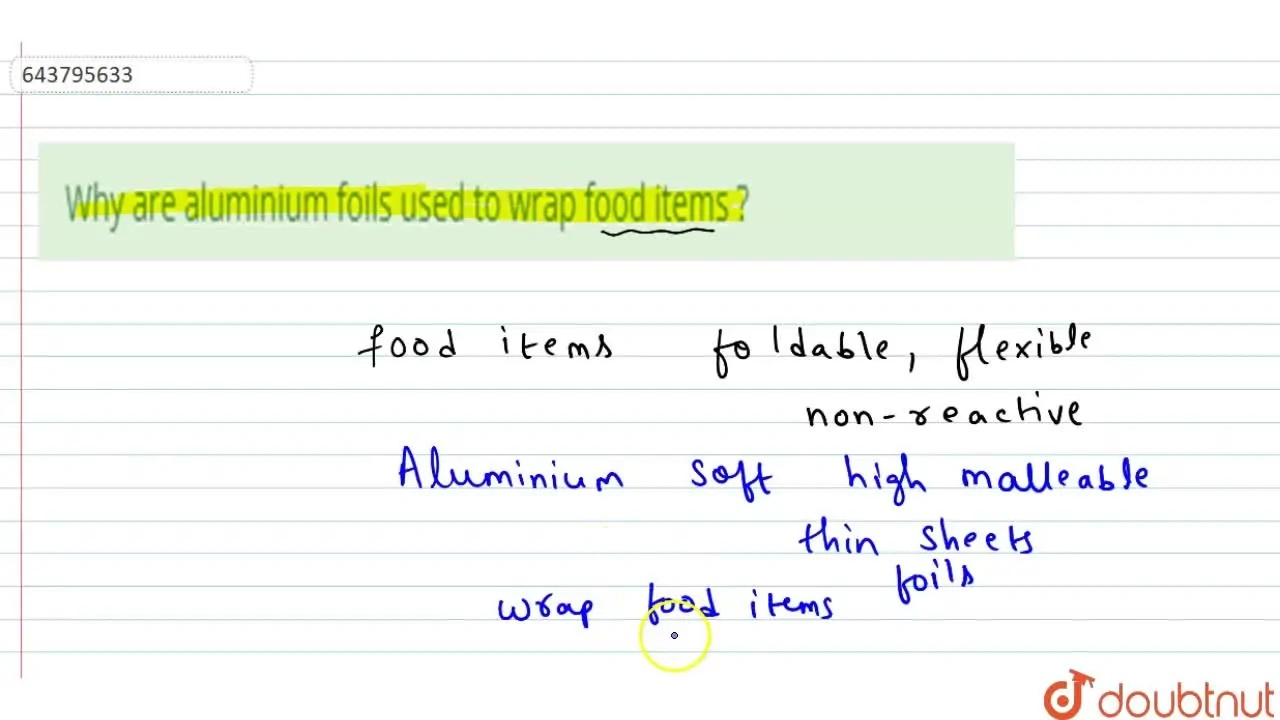 643795633
Why are aluminium foils used to wrap food items ?
food items foldable, flexible
non-reactive
Aluminium soft high malleable
thin sheets
foils
wrap food items
doubtnut